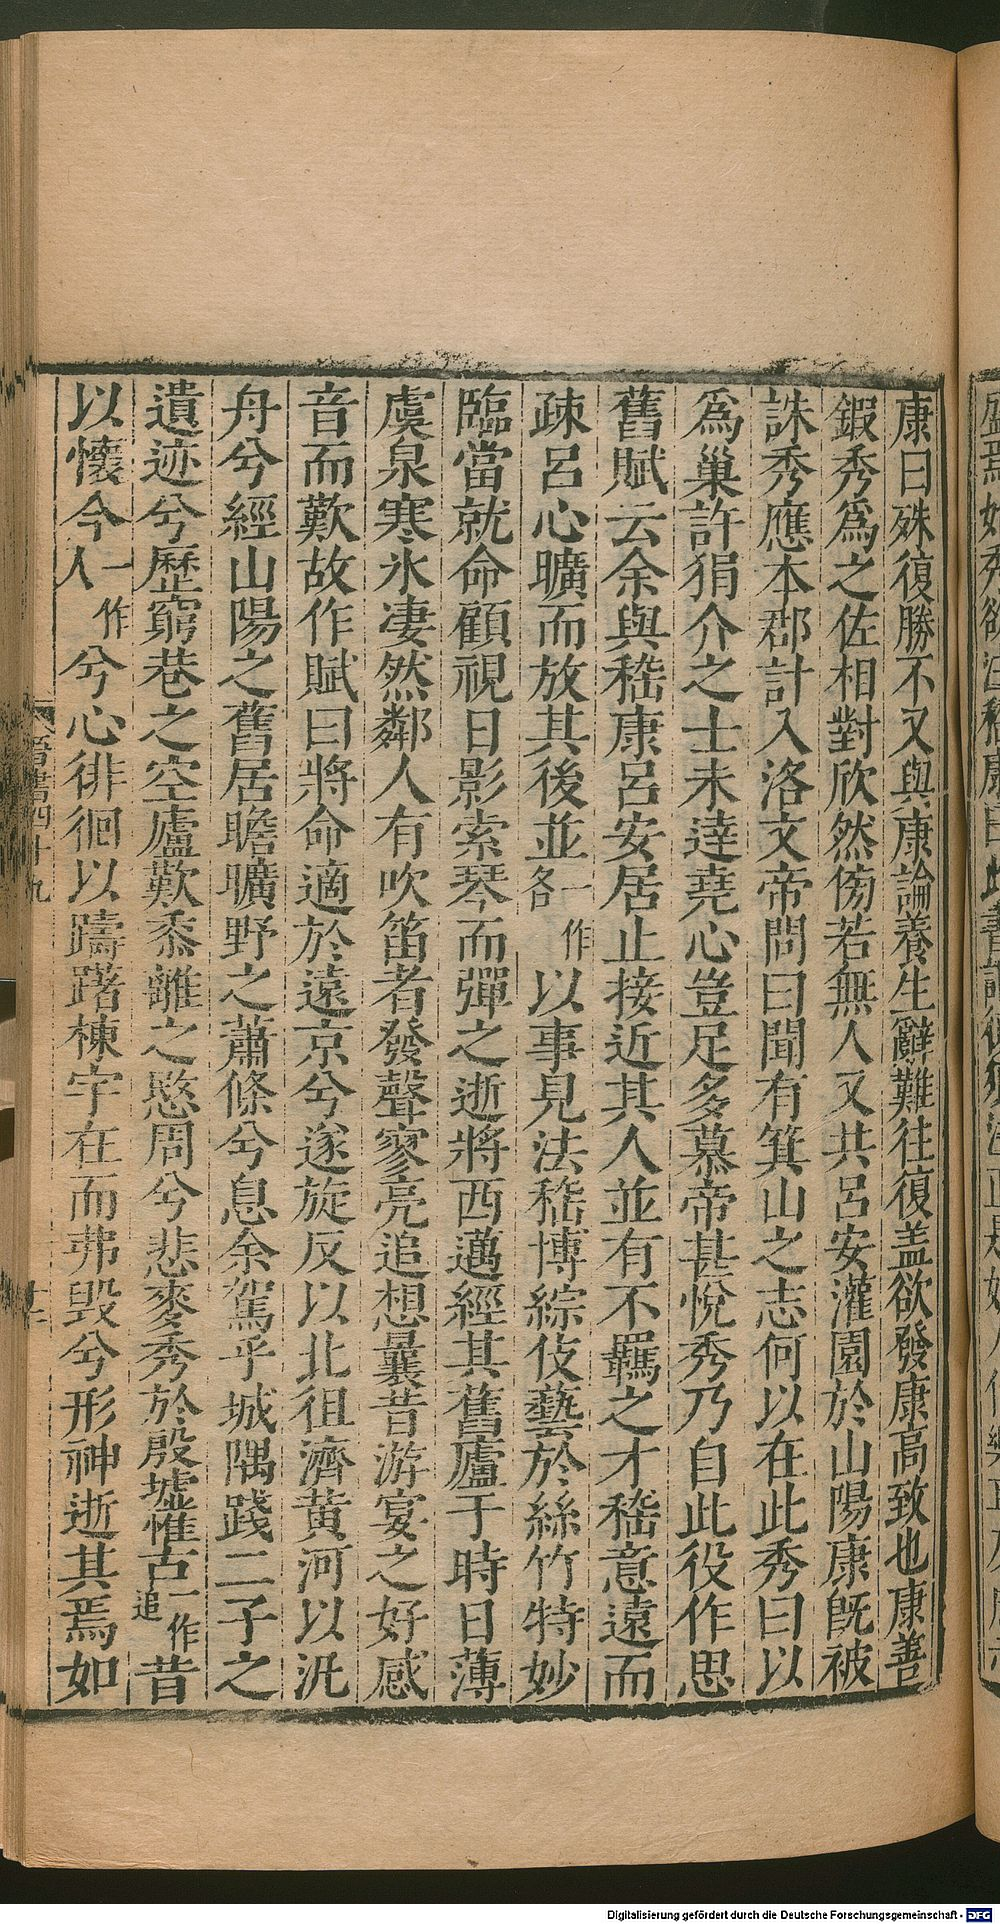 康曰殊復勝不又與康論養生辭難往復盖欲發康高致也康善
鍜秀爲之佐相對欣然傍若無人又共呂安灌園於山陽康旣被
誅秀應本郡計入洛文帝問曰聞有箕山之志何以在此秀曰以
爲巢許狷介之士未達堯心豈足多慕帝甚悅秀乃自此役作思
舊賦云余與嵇康呂安居止接近其人並有不羈之才嵇意遠而
疎呂心曠而放其後並一作各以事見法嵇博綜伎藝於絲竹特妙
臨當就命顧視日影索琴而彈之逝將西邁經其舊廬于時日薄
虞泉寒氷凄然鄰人有吹笛者發聲寥亮追想曩昔游宴之好感
音而歎故作賦曰將命適於遠京兮遂旋反以北徂濟黃河以汎
舟兮經山陽之舊居瞻曠野之蕭條兮息余駕乎城隅踐二子之
遺迹兮歷窮巷之空廬歎黍離之愍周兮悲麥秀於殷墟惟古一作追昔
以懷今一作人兮心徘徊以躊躇棟宇在而弗毁兮形神逝其焉如
晉書四十九
十二
Digitalisierung gefördert durch die Deutsche Forschungsgemeinschaft - DFG